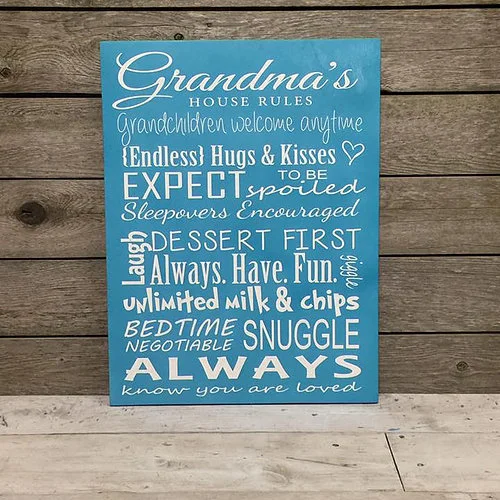 Grandma's
HOUSE RULES
Grandchildren welcome anytime
{Endless} Hugs & Kisses
EXPECT TO BE spoiled
Sleepovers Encouraged
Laugh
DESSERT FIRST
giggle
Always. Have. Fun.
unlimited milk & chips
BEDTIME NEGOTIABLE
SNUGGLE
ALWAYS
know you are loved